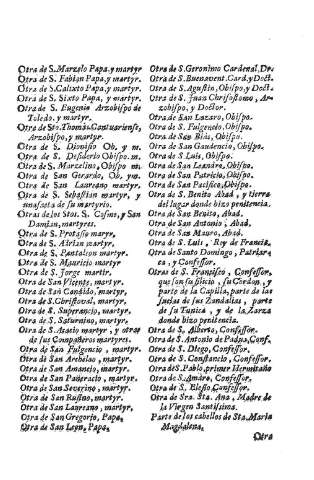 Otra de S. Marzelo Papa, y martyr
Otra de S. Fabian Papa, y martyr.
Otra de S. Calixto Papa, y martyr.
Otra de S. Sixto Papa, y martyr.
Otra de S. Eugenio Arzobispo de
Toledo, y martyr.
Otra de Sto. Thomàs Cantuariense,
Arzobispo, y martyr.
Otra de S. Dionisio Ob. y m.
Otra de S. Desiderio Obispo. m.
Otra de S. Marzelino, Obispo m.
Otra de San Gerardo, Ob. ym.
Otra de San Laureano martyr.
Otra de S. Sebastian martyr, y
manifesta de su martyrio.
Otras de los Stos. S. Cosme, y San
Damian, martyres.
Otra de S. Protasio martyr.
Otra de S. Adrian martyr.
Otra de S. Pantaleon martyr.
Otra de S. Mauricio martyr
Otra de S. Jorge martir.
Otra de San Vicente, martyr.
Otra de San Candido, martyr.
Otra de S. Christoval, martyr.
Otra de S. Superancio, martyr.
Otra de S. Saturnino, martyr.
Otra de S. Acasio martyr, y otras
de sus Compañeros martyres.
Otra de San Fulgencio, martyr.
Otra de San Archilao, martyr.
Otra de San Amancio, martyr.
Otra de San Pancracio, martyr.
Otra de San Severino, martyr.
Otra de San Rufino, martyr.
Otra de San Laureano, martyr.
Otra de San Gregorio, Papa.
Otra de San Leon, Papa.
Otra de S. Geronimo Cardenal, Do.
Otra de S. Buenavent. Card. y Doct.
Otra de S. Agustin, Obispo, y Doct.
Otra de S. Juan Chrisostomo, Ar-
zobispo, y Doctor.
Otra de San Lazaro, Obispo.
Otra de S. Fulgencio, Obispo.
Otra de San Blàs, Obispo.
Otra de San Gaudencio, Obispo.
Otra de S. Luis, Obispo.
Otra de San Leandro, Obispo.
Otra de San Patricio, Obispo.
Otra de San Pacifico, Obispo.
Otra de S. Benito Abad, y tierra
del lugar donde hizo penitencia.
Otra de San Benito, Abad.
Otra de San Antonio, Abad.
Otra de San Mauro, Abad.
Otra de S. Luis, Rey de Francia.
Otra de Santo Domingo, Patriar-
ca, y Confessor.
Otras de S. Francisco, Confessor,
que son su silicio, su Cordon, y
parte de la Capilla, parte de las
suelas de sus Zandalias, parte
de su Tunica, y de la Zarza
donde hizo penitencia.
Otra de S. Alberto, Confessor.
Otra de S. Antonio de Padua, Conf.
Otra de S. Diego, Confessor.
Otra de S. Constancio, Confessor.
Otra de S. Pablo, primer Hermitaño
Otra de S. Amaro, Confessor.
Otra de S. Eleffo, Confessor.
Otra de Sra. Sta. Ana, Madre de
la Virgen Santissima.
Parte de los cabellos de Sta. Maria
Magdalena.
Otra